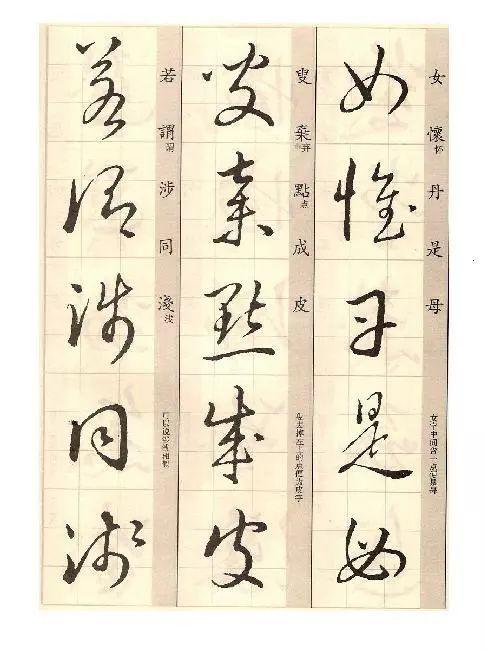 女懷怀丹是母
女惟丹是母
叟棄弃點点成皮
叟棄點成皮
若謂谓涉同淺浅
若謂涉同淺